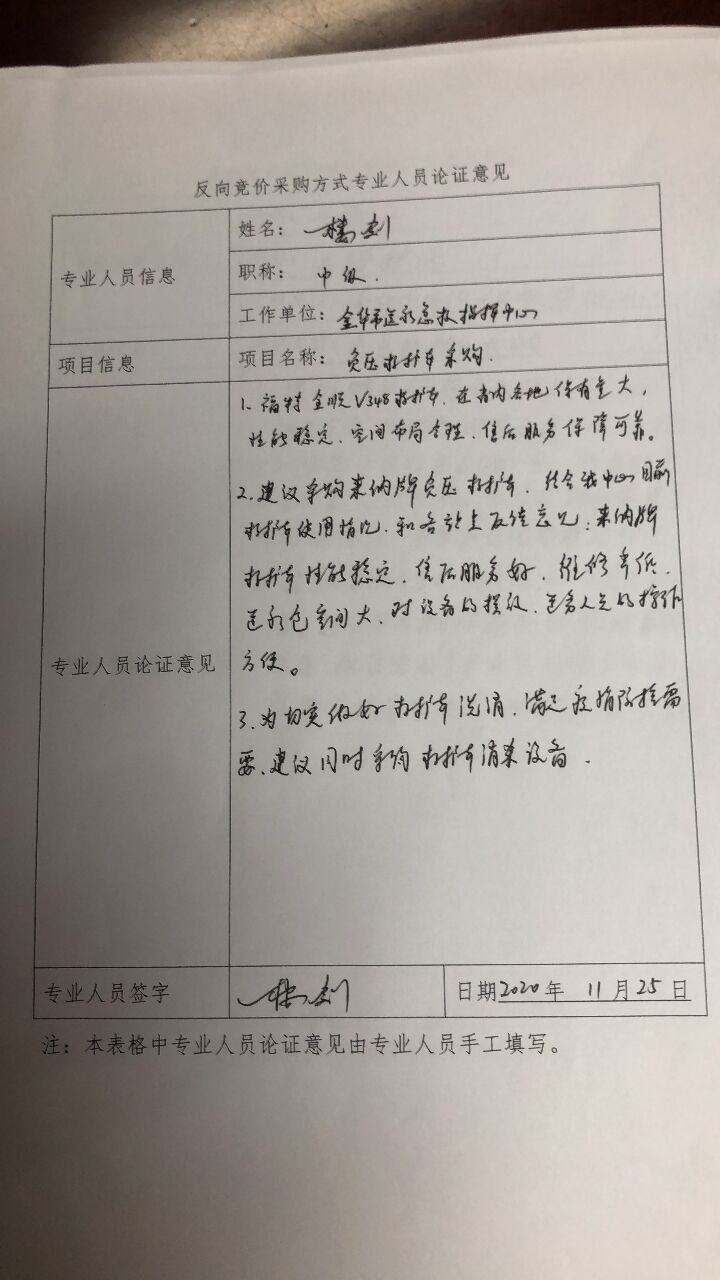 反向竞价采购方式专业人员论证意见
专业人员信息
姓名：楼剑
职称：中级.
工作单位：金华市医疗急救指挥中心
项目信息
项目名称：负压救护车采购.
专业人员论证意见
1. 福特全顺V348救护车、在省内各地保有量大，
性能稳定、空间布局合理、售后服务保障可靠。
2. 建议采购来纳牌负压救护车、结合我中心目前
救护车使用情况、和各站上反馈意见、来纳牌
救护车性能稳定、售后服务好、维修率低、
医疗仓空间大、对设备的摆放、医务人员的操作
方便。
3. 为切实做好救护车洗消、满足疫情防控需
要、建议同时采购救护车清洗设备.
专业人员签字
楼剑
日期2020年 11月25日
注：本表格中专业人员论证意见由专业人员手工填写。